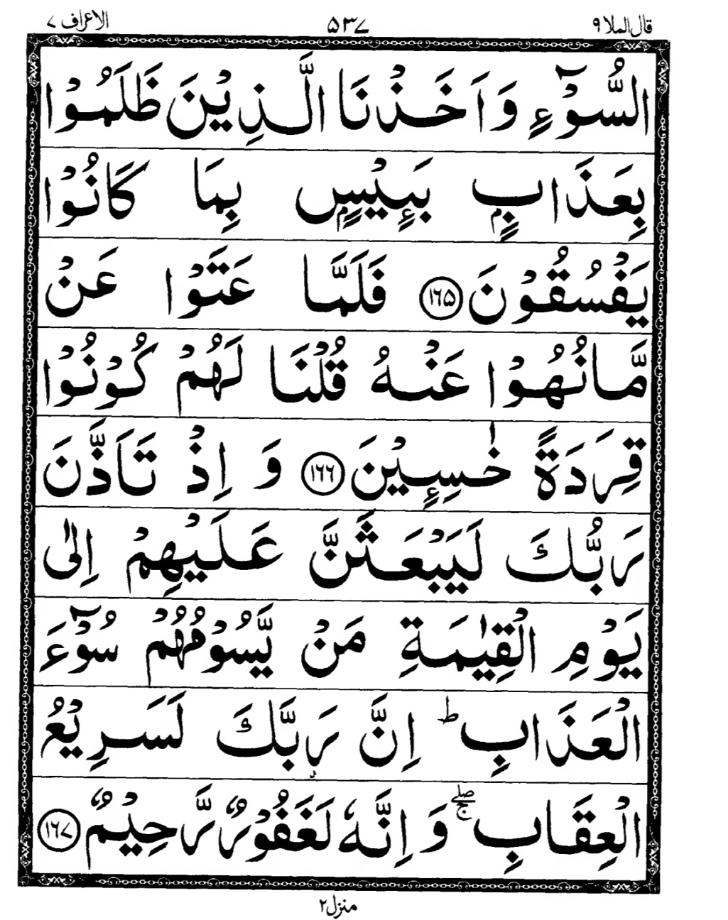 قال الملا ۹ ۵۳۷ الاعراف ۷
السُّوْٓءِ وَاَخَذْنَا الَّذِيْنَ ظَلَمُوْا
بِعَذَابٍۭ بَـِٕيْسٍۭ بِمَا كَانُوْا
يَفْسُقُوْنَ ﴿۱۶۵﴾ فَلَمَّا عَتَوْا عَنْ
مَّا نُهُوْا عَنْهُ قُلْنَا لَهُمْ كُوْنُوْا
قِرَدَةً خٰسِـِٕيْنَ ﴿۱۶۶﴾ وَ اِذْ تَاَذَّنَ
رَبُّكَ لَيَبْعَثَنَّ عَلَيْهِمْ اِلٰى
يَوْمِ الْقِيٰمَةِ مَنْ يَّسُوْمُهُمْ سُوْٓءَ
الْعَذَابِ ؕ اِنَّ رَبَّكَ لَسَرِيْعُ
الْعِقَابِ ۖۚ وَ اِنَّهٗ لَغَفُوْرٌ رَّحِيْمٌ ﴿۱۶۷﴾
منزل ۲